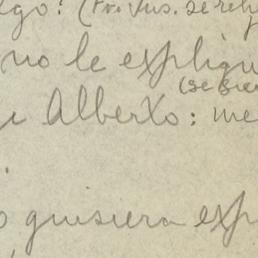 lgo? (Fr. Jus. se reh
no le expliqu
(se sien
i Alberto: me
o quisiera exp